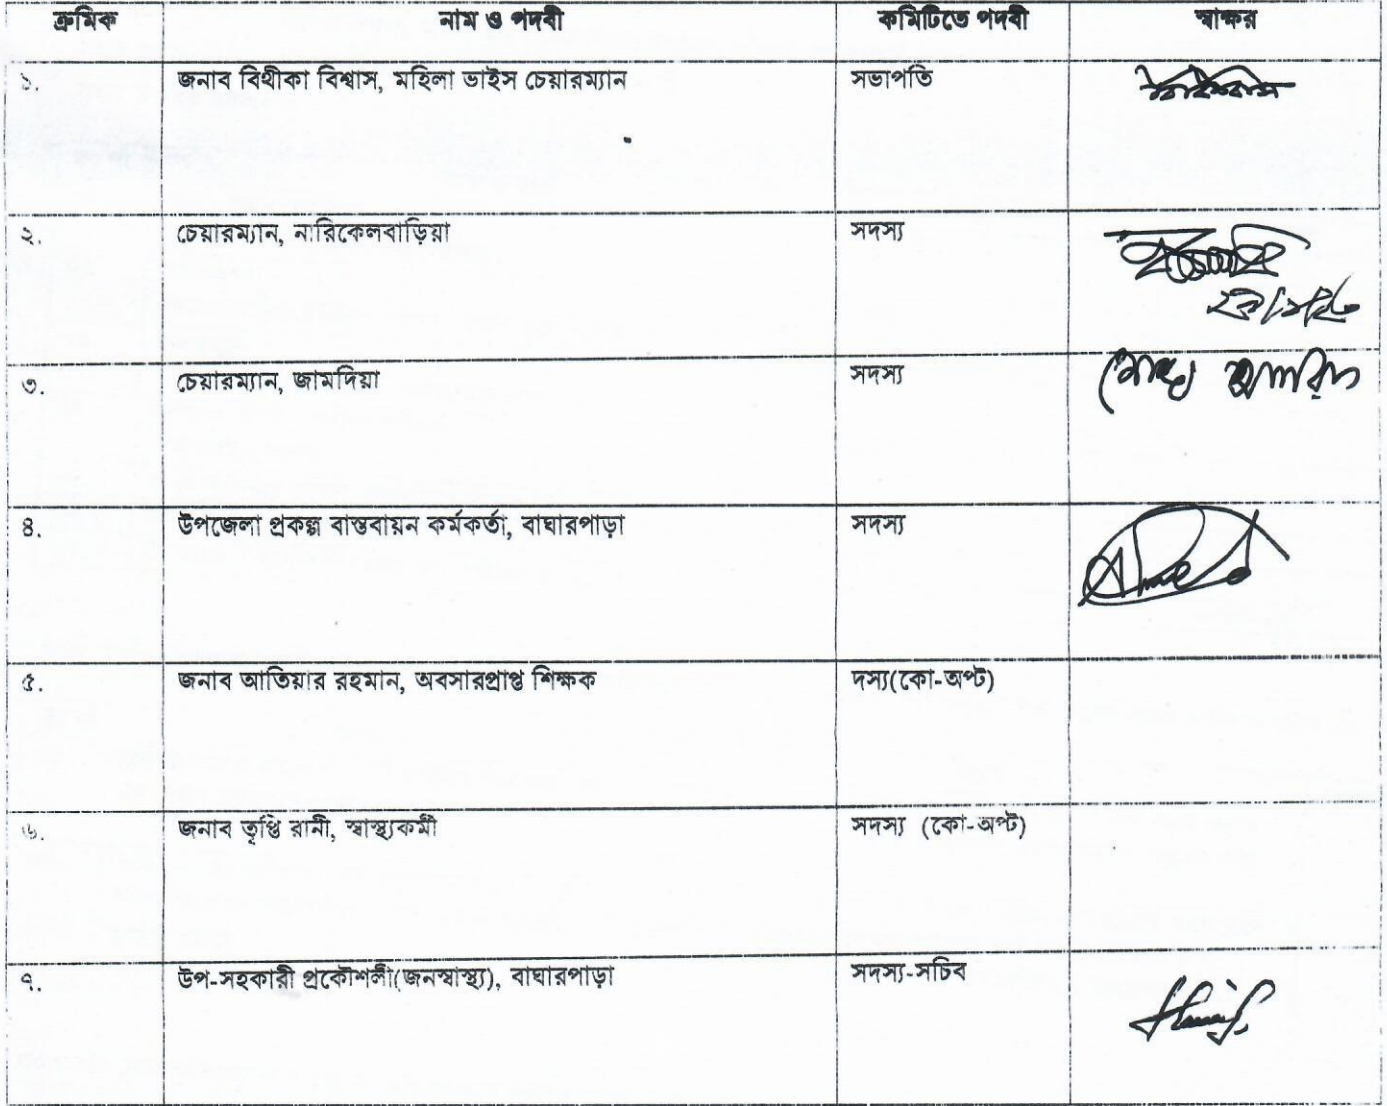 ক্রমিক নাম ও পদবী কমিটিতে পদবী স্বাক্ষর
১. জনাব বিথীকা বিশ্বাস, মহিলা ভাইস চেয়ারম্যান সভাপতি
২. চেয়ারম্যান, নারিকেলবাড়িয়া সদস্য
৩. চেয়ারম্যান, জামদিয়া সদস্য
৪. উপজেলা প্রকল্প বাস্তবায়ন কর্মকর্তা, বাঘারপাড়া সদস্য
৫. জনাব আতিয়ার রহমান, অবসারপ্রাপ্ত শিক্ষক দস্য(কো-অপ্ট)
৬. জনাব তৃপ্তি রানী, স্বাস্থ্যকর্মী সদস্য (কো-অপ্ট)
৭. উপ-সহকারী প্রকৌশলী(জনস্বাস্থ্য), বাঘারপাড়া সদস্য-সচিব